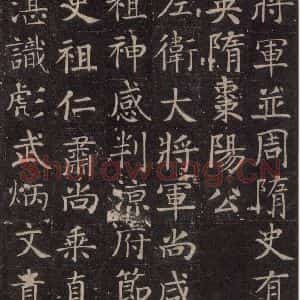 將軍並周隋史有
英隋棗陽公
左衛大将軍尚
祖神感判涼府節
史祖仁肅尚乘直
湛識彪武炳文
Shufawang.CN